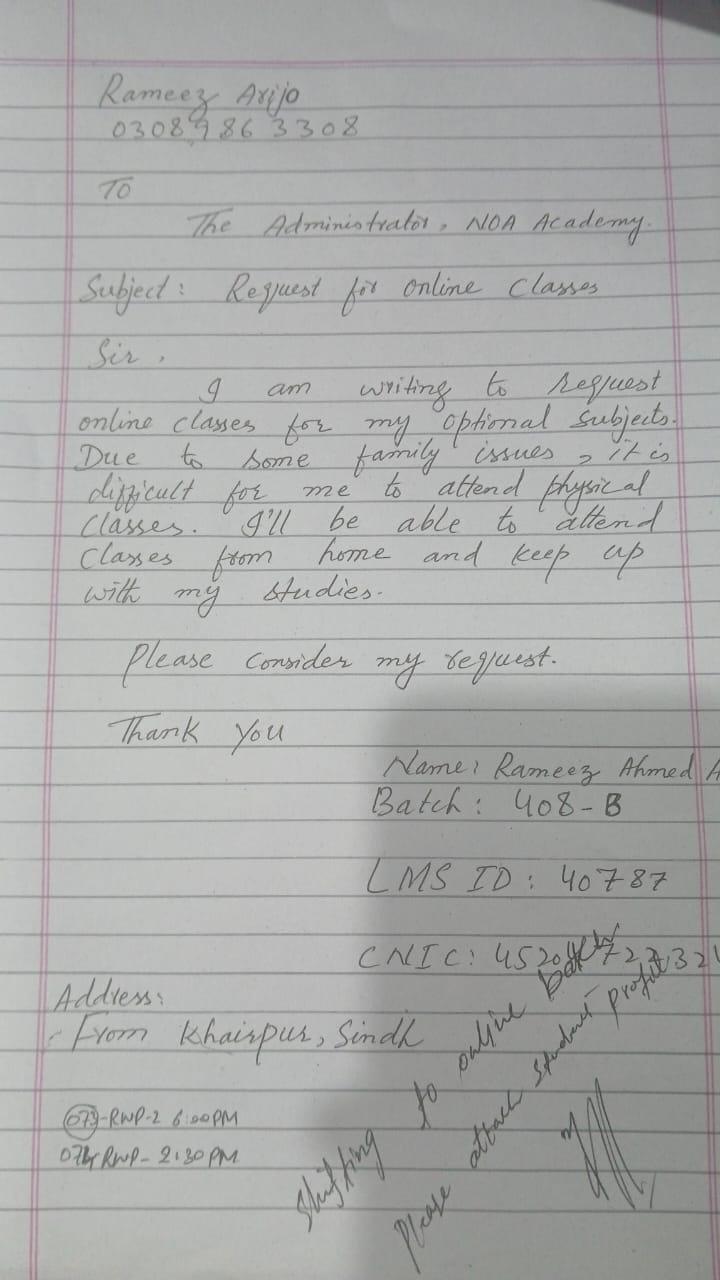 Rameez Arijo
0308986 3308
To
The Administrator, NOA Academy.
Subject: Request for online Classes
Sir,
I am writing to request
online classes for my optional subjects.
Due to some family issues, it is
difficult for me to attend physical
classes. I'll be able to attend
classes from home and keep up
with my studies.
Please consider my request.
Thank you
Name: Rameez Ahmed A
Batch: 408-B
LMS ID: 40787
CNIC:
Address:
From Khairpur, Sindh
073-RWP-2 6:00PM
074 RWP- 2:30 PM
Shifting to online batch
Please attach student profile